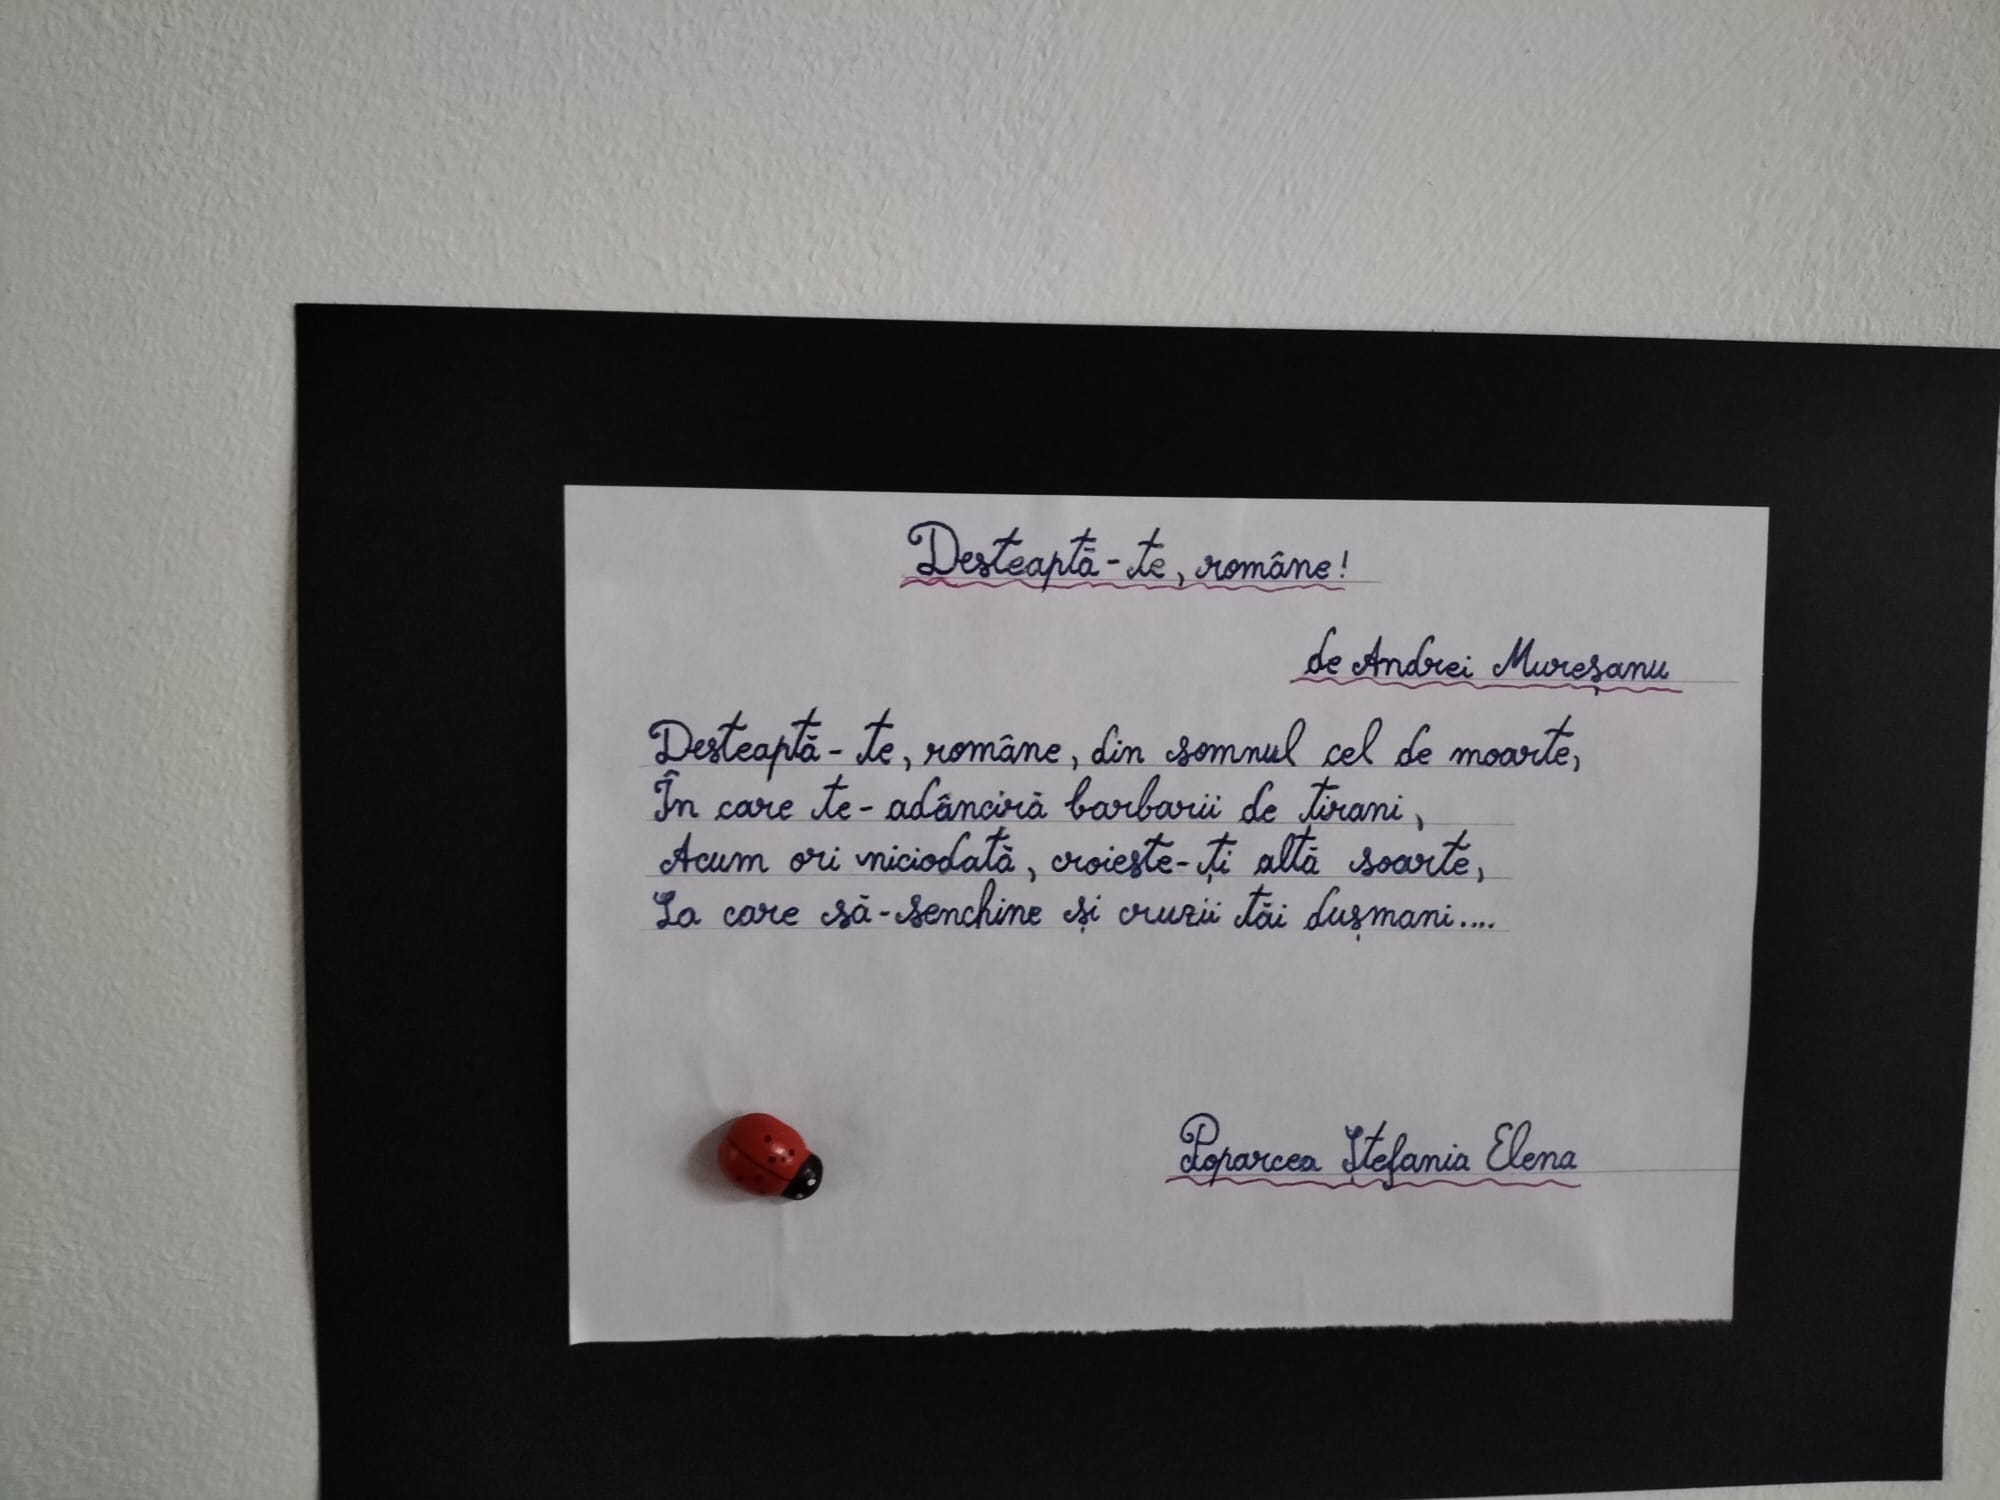 Desteaptă-te, române!
de Andrei Mureșanu
Desteaptă-te, române, din somnul cel de moarte,
În care te-adânciră barbarii de tirani,
Acum ori niciodată, croieste-ți altă soarte,
La care să-senchine și cruzii tăi dușmani....
Poparcea Ștefania Elena